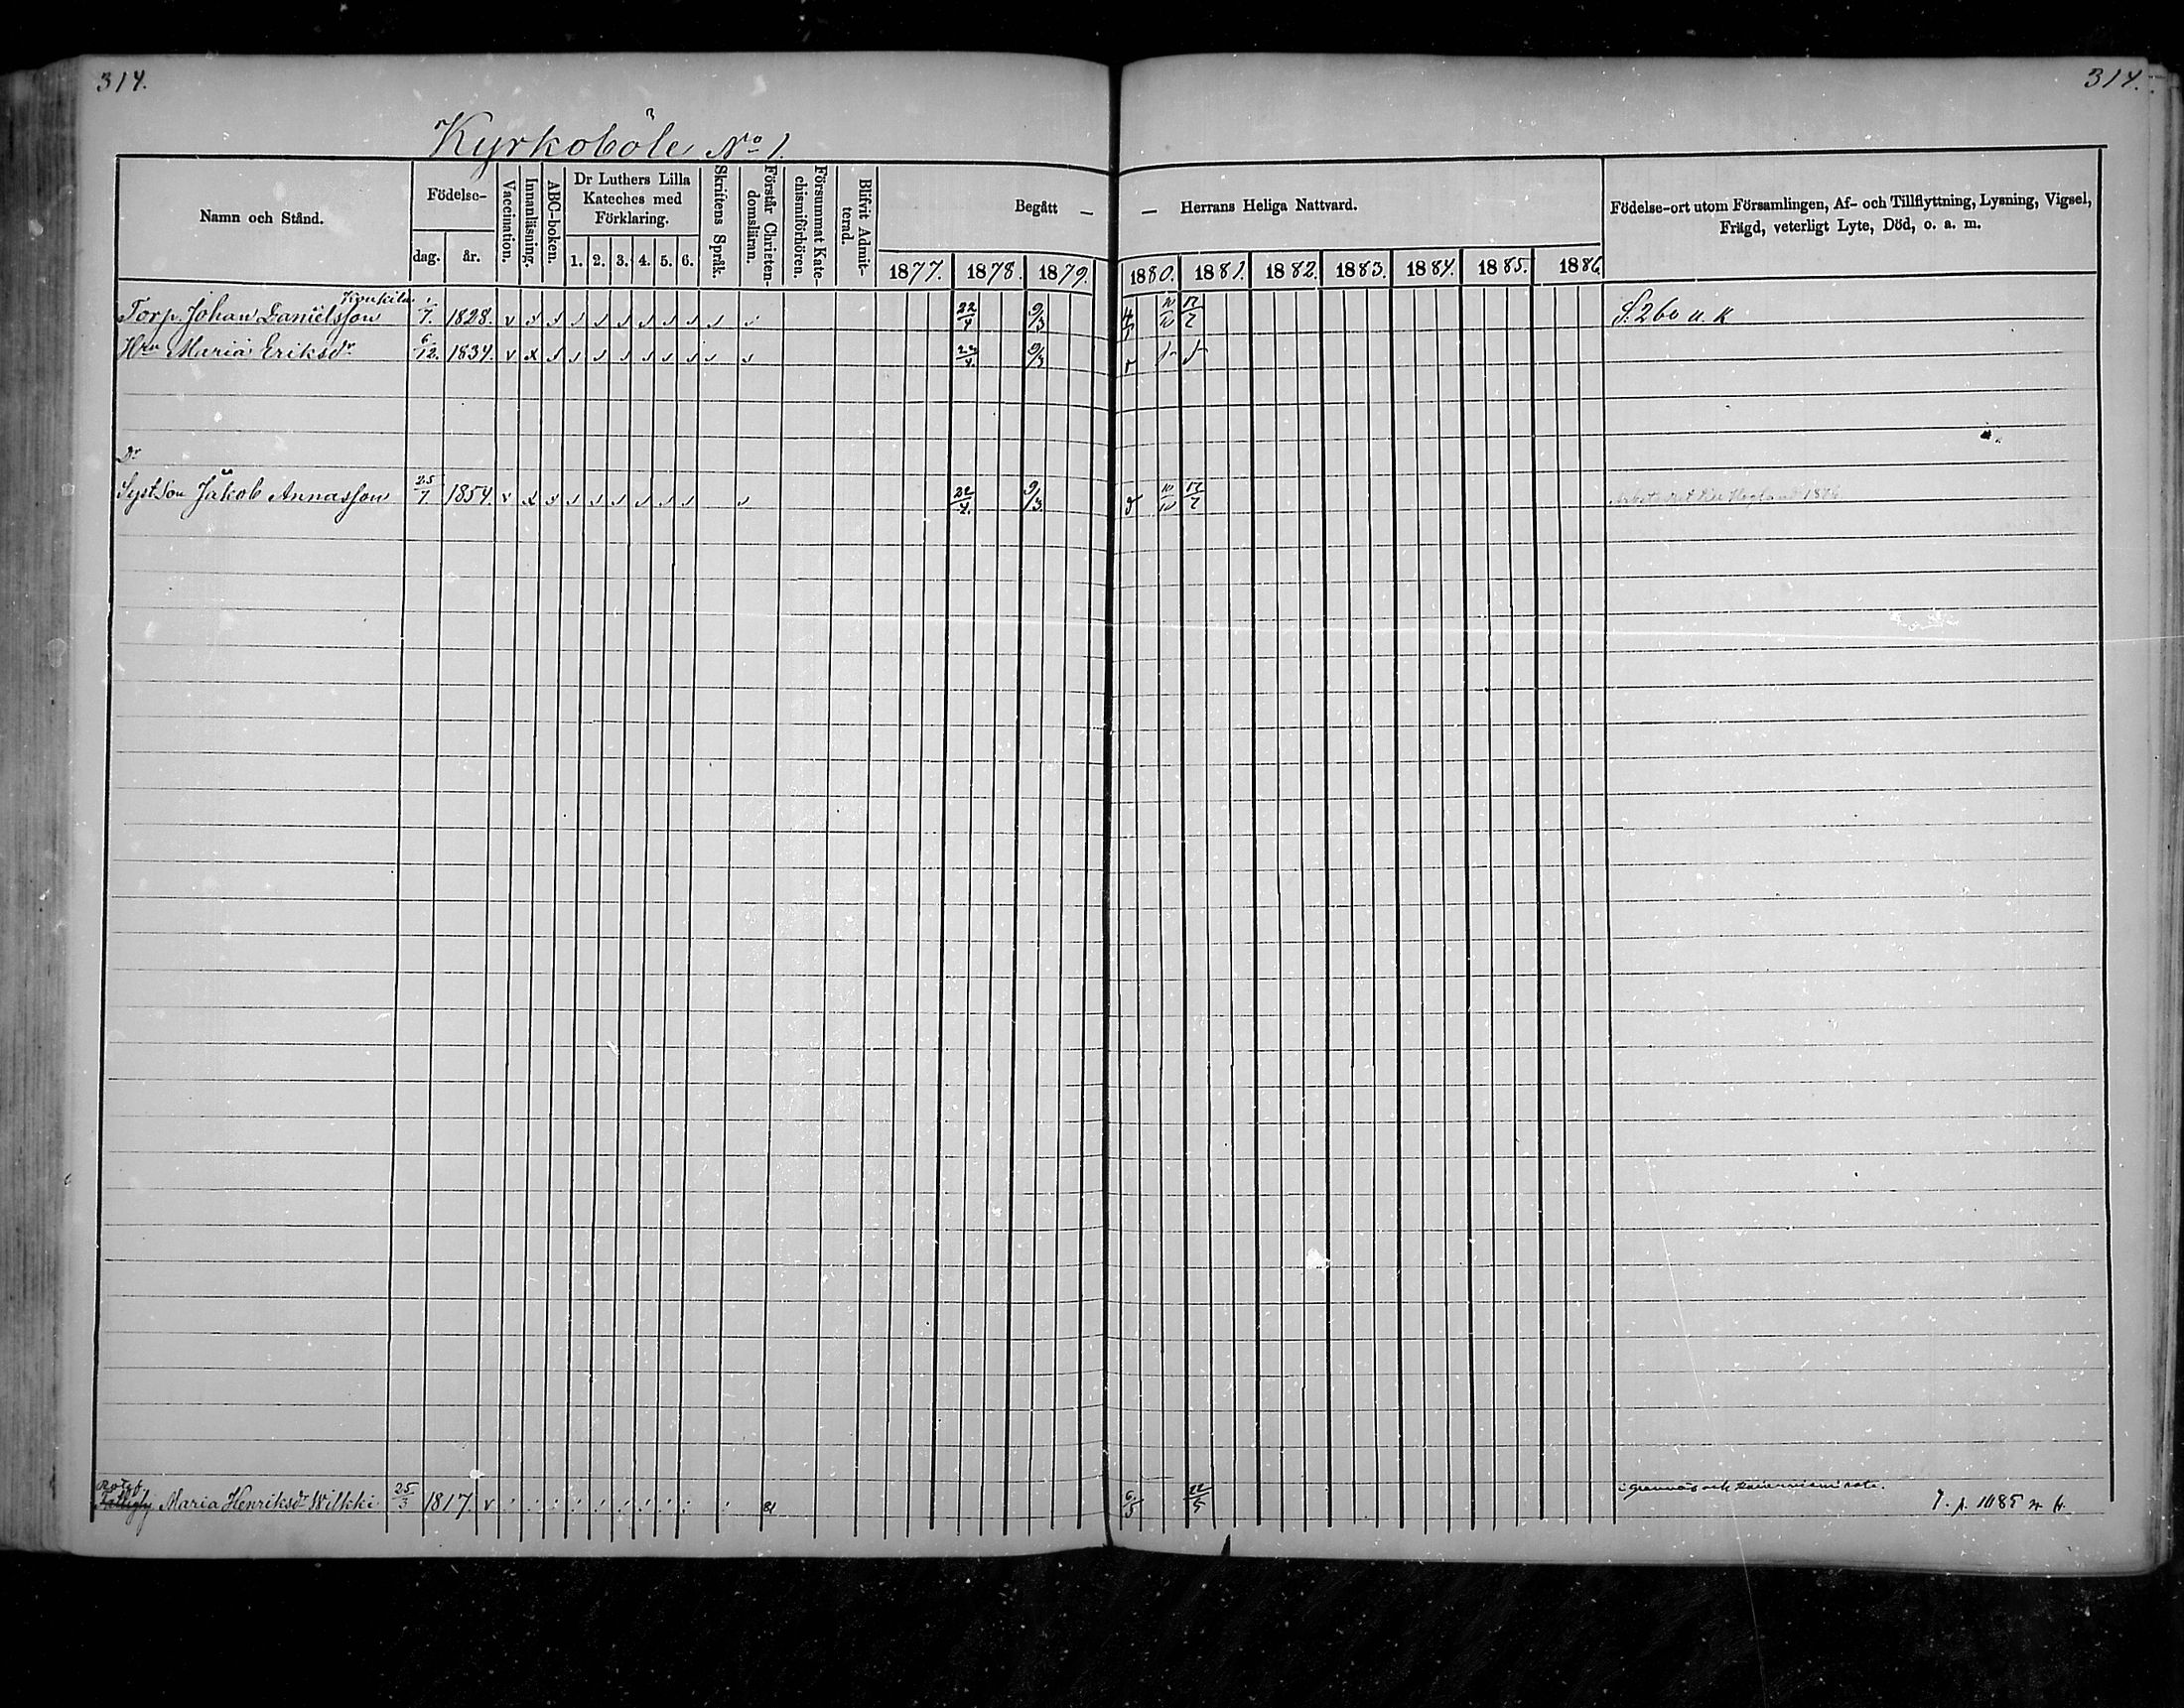 314.
314.
Kyrkoböle No 1.
Namn och Stånd.
Födelse-
dag.
år.
Vaccination.
Innanläsning.
ABC-boken.
Dr Luthers Lilla
Kateches med
Förklaring.
1. 2. 3. 4. 5. 6.
Skriftens Språk.
Förstår Christen-
domsläran.
Försummat Kate-
chismiförhören.
Blifvit Admit-
terad.
Begått —
— Herrans Heliga Nattvard.
1877. 1878. 1879. 1880. 1881. 1882. 1883. 1884. 1885. 1886.
Födelse-ort utom Församlingen, Af- och Tillflyttning, Lysning, Vigsel,
Frägd, veterligt Lyte, Död, o. a. m.
Torp. Johan Danielsson 1/7. 1828. v 22/4 9/3 S. 260 u. k
Hru Maria Eriksdr 6/12. 1834. v x 22/4. 9/3
Dr
Syst son Jakob Annasson 25/7 1854. v x 22/4. 9/3 1876
Maria Henriksd Wilkki 25/3 1817. v 6/5 22/5 p. 1085